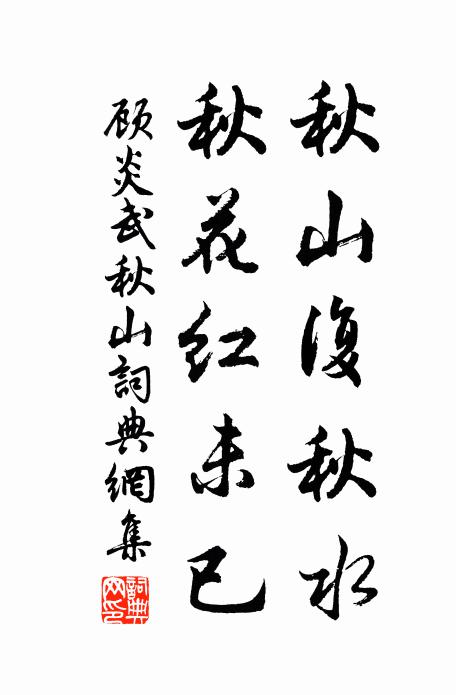 秋山復秋水
秋花紅未已
顧炎武秋山詞典網集
詞典
网印